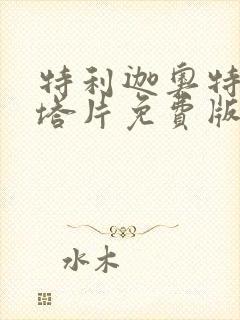 特利迦奥特
塔片免費版
水木